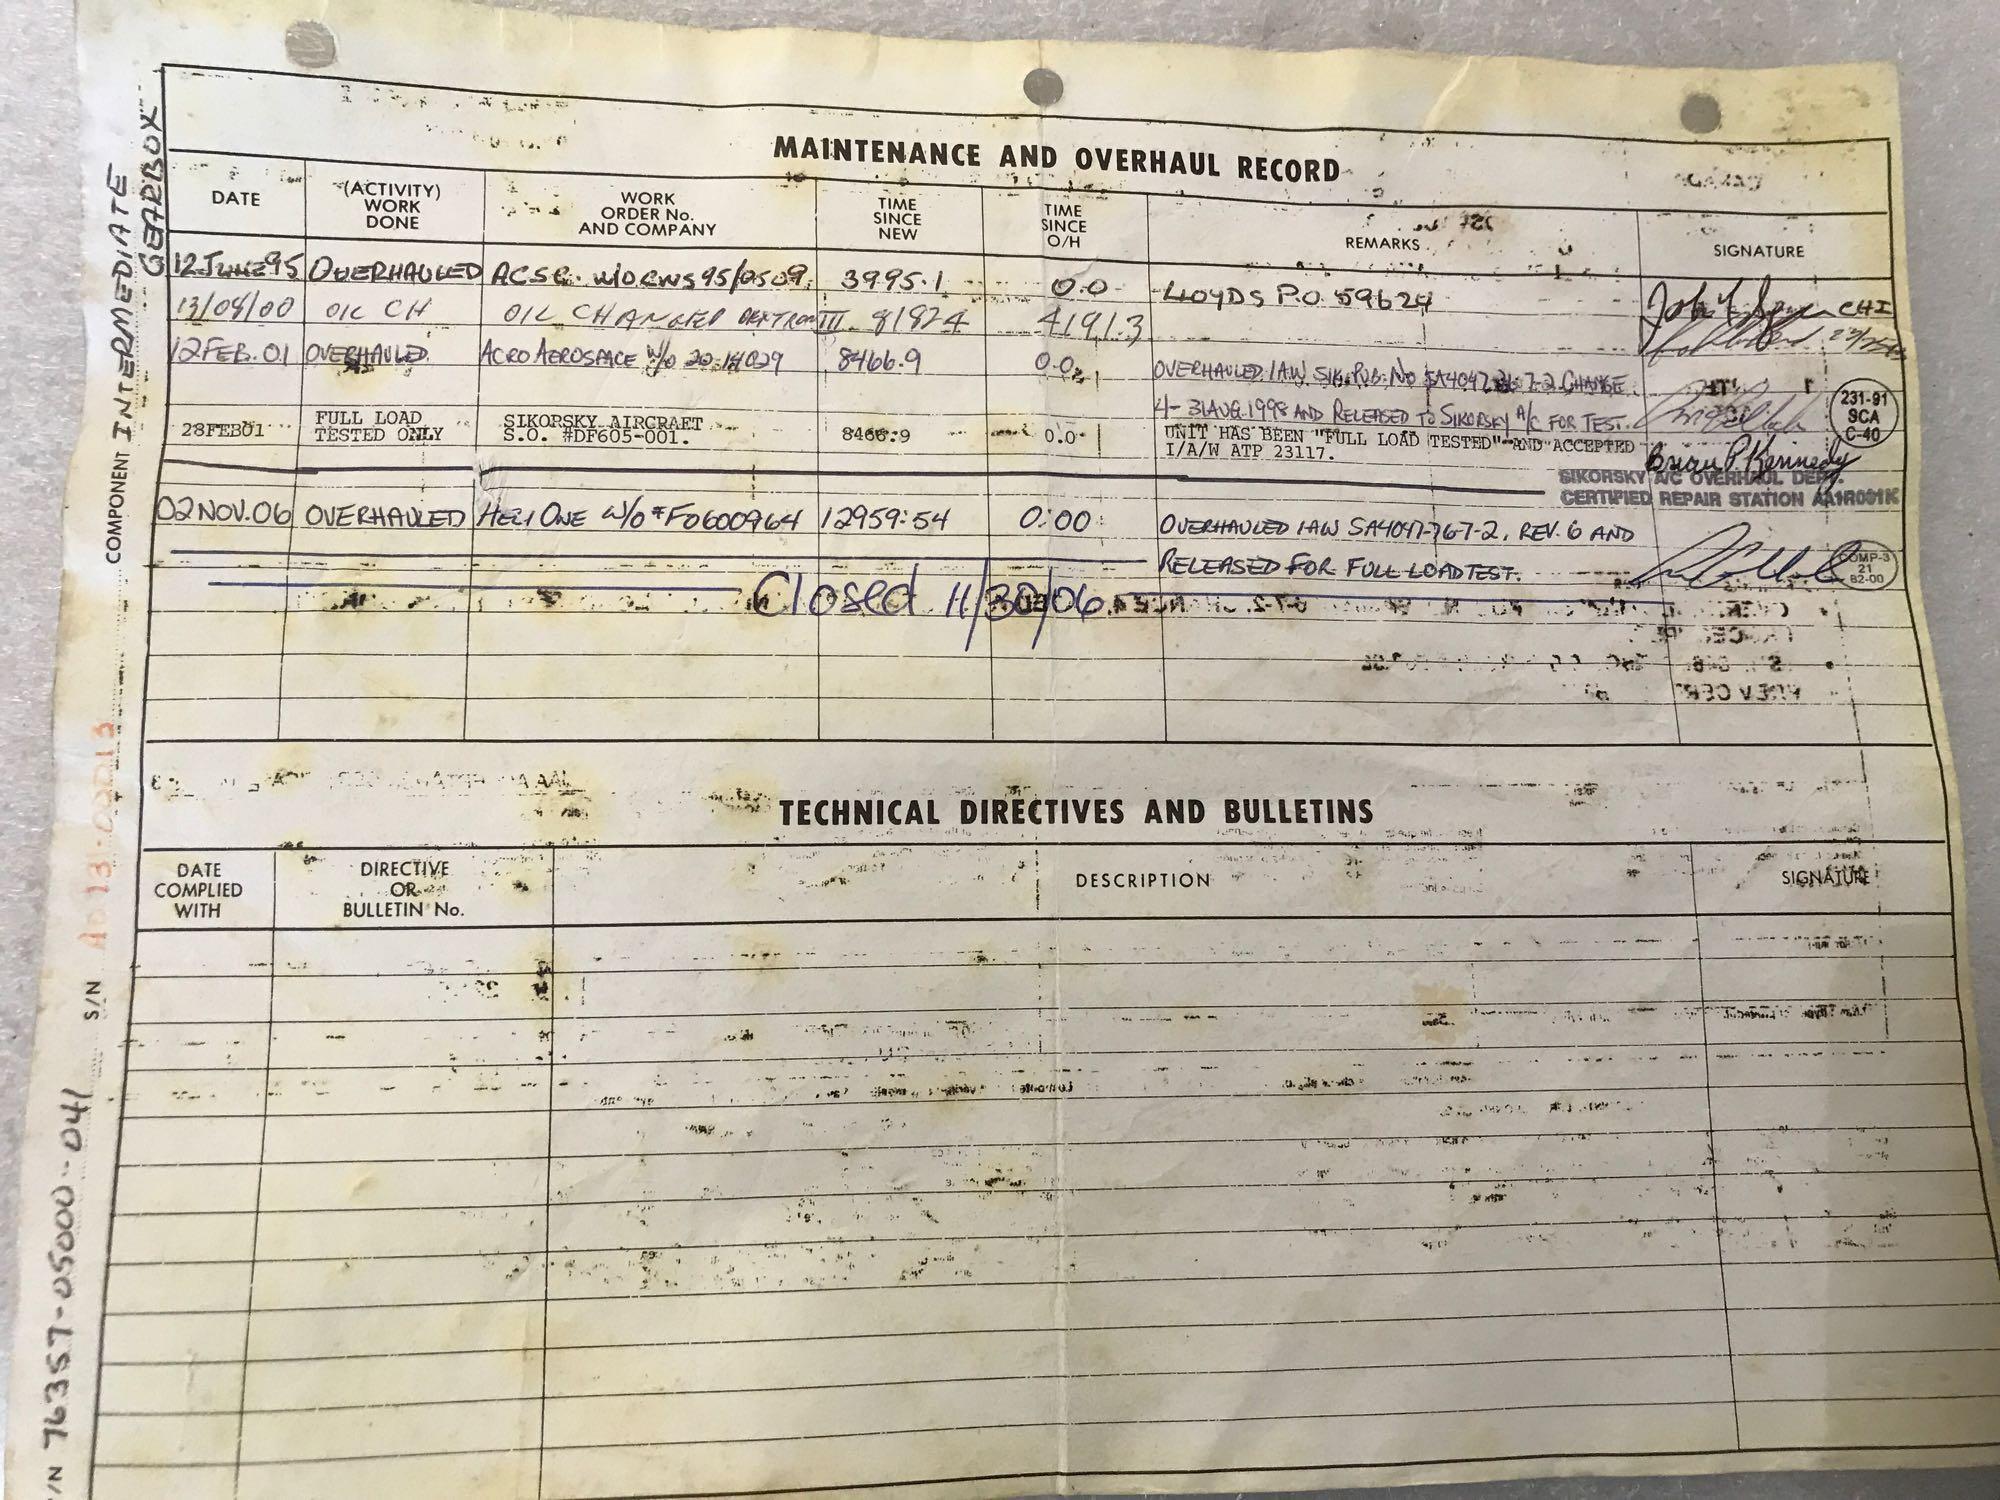 MAINTENANCE AND OVERHAUL RECORD
DATE
(ACTIVITY)
WORK
DONE
WORK
ORDER No.
AND COMPANY
TIME
SINCE
NEW
TIME
SINCE
O/H
REMARKS
SIGNATURE
12 JUNE 95 OVERHAULED ACSC W/O CWS 95/0509 3995.1 0.0 LLOYDS P.O 59624 CHI
13/04/00 OIL CH OIL CHANGED III 4191.3
12 FEB. 01 OVERHAULED ACRO AEROSPACE W/O 20-14029 8466.9 0.0
OVERHAULED IAW SIK. PUB. NO SA4047-76-7-2 CHANGE
4-31AUG.1998 AND RELEASED TO SIKORSKY A/C FOR TEST.
231-91
SCA
C-40
28FEB01
FULL LOAD
TESTED ONLY
SIKORSKY AIRCRAFT
S.O. #DF605-001.
8466.9 0.0
UNIT HAS BEEN "FULL LOAD TESTED" AND ACCEPTED
I/A/W ATP 23117.
Brian P. Kennedy
SIKORSKY A/C OVERHAUL DEPT.
CERTIFIED REPAIR STATION AA1R091K
02 NOV. 06 OVERHAULED HELI ONE W/O #F0600964 12959:54 0:00
OVERHAULED IAW SA4047-76-7-2, REV. 6 AND
RELEASED FOR FULL LOAD TEST.
COMP-3
21
82-00
Closed 11/30/06
TECHNICAL DIRECTIVES AND BULLETINS
DATE
COMPLIED
WITH
DIRECTIVE
OR
BULLETIN No.
DESCRIPTION
SIGNATURE
COMPONENT INTERMEDIATE
GEARBOX
S/N
76357-05000-041